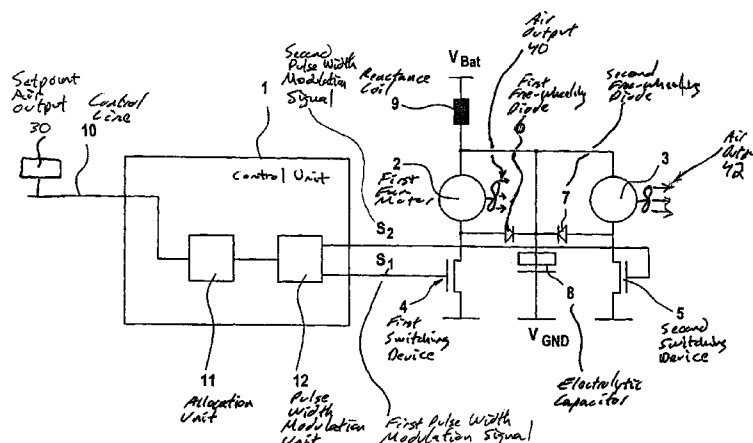 Setpoint
Air
Output
30
Control
Line
10
1
Control Unit
Second
Pulse Width
Modulation
Signal
Reactance
Coil
9
V Bat
Air
Output
40
First
Free-wheeling
Diode
6
Second
Free-wheeling
Diode
7
Air
Output
42
2
First
Fan
Motor
3
S2
S1
4
First
Switching
Device
8
VGND
5
Second
Switching
Device
Electrolytic
Capacitor
11
Allocation
Unit
12
Pulse
Width
Modulation
Unit
First Pulse Width
Modulation Signal